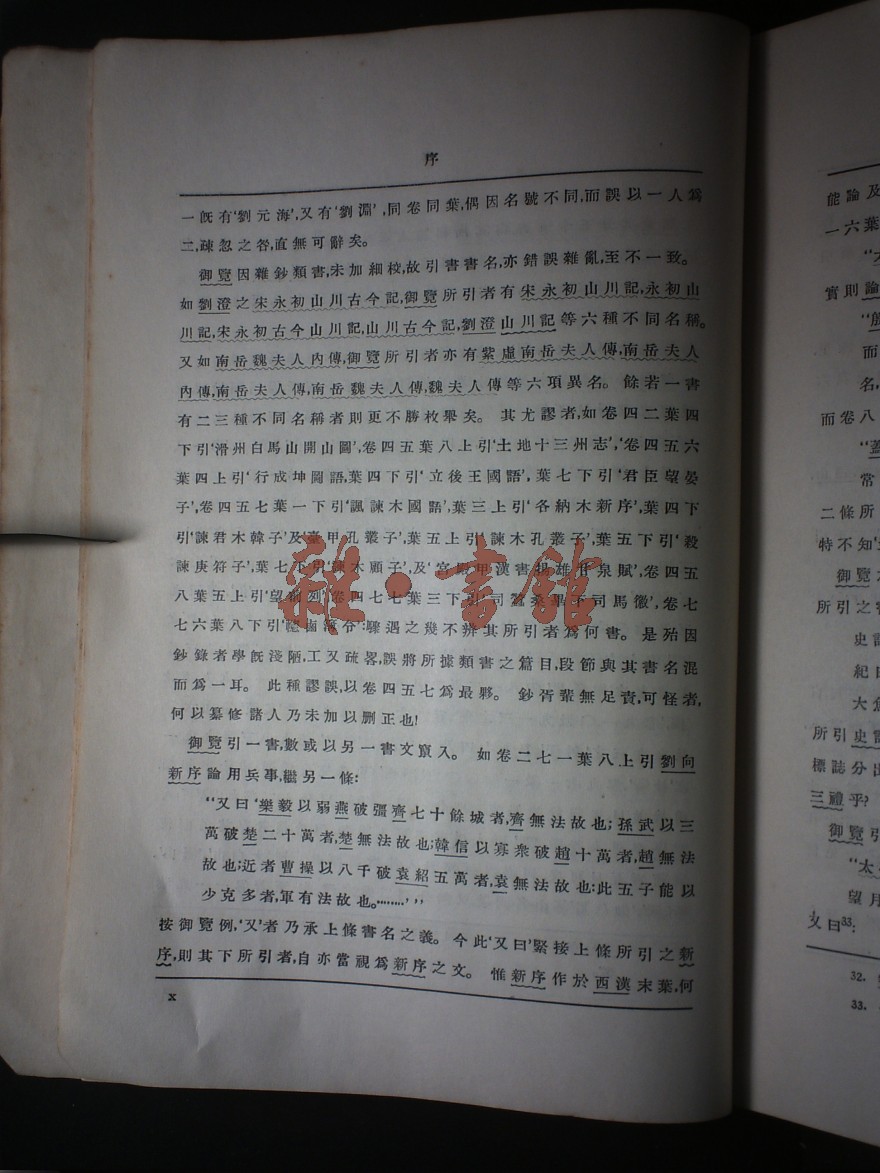 序
一旣有‘劉元海’,又有‘劉淵’,同卷同葉,偶因名號不同,而誤以一人爲
二,疎忽之咎,直無可辭矣。
御覽因雜鈔類書,未加細校,故引書書名,亦錯誤雜亂,至不一致。
如劉澄之宋永初山川古今記,御覽所引者有宋永初山川記,永初山
川記,宋永初古今山川記,山川古今記,劉澄山川記等六種不同名稱。
又如南岳魏夫人內傳,御覽所引者亦有紫虛南岳夫人傳,南岳夫人
內傳,南岳夫人傳,南岳魏夫人傳,魏夫人傳等六項異名。餘若一書
有二三種不同名稱者則更不勝枚舉矣。其尤謬者,如卷四二葉四
下引‘滑州白馬山開山圖’,卷四五葉八上引‘土地十三州志’,‘卷四五六
葉四上引‘行成坤圖語,葉四下引‘立後王國語’,葉七下引‘君臣望晏
子’,卷四五七葉一下引‘諷諫木國語’,葉三上引‘各納木新序’,葉四下
引‘諫君木韓子’及‘臺甲孔叢子’,葉五上引‘諫木孔叢子’,葉五下引‘殺
諫庚符子’,葉七下引‘諫木顧子’,及‘宮殿甲漢書揚雄甘泉賦’,卷四五
八葉五上引‘望 列 卷四七七葉三下引‘司 司馬徽’,卷七
七六葉八下引‘ 鹵簿令:驟遇之幾不辨其所引者爲何書。是殆因
鈔錄者學旣淺陋,工又疏畧,誤將所據類書之篇目,段節與其書名混
而爲一耳。此種謬誤,以卷四五七爲最夥。鈔胥輩無足責,可怪者,
何以纂修諸人乃未加以刪正也!
御覽引一書,數或以另一書文竄入。如卷二七一葉八上引劉向
新序論用兵事,繼另一條:
“又曰‘樂毅以弱燕破彊齊七十餘城者,齊無法故也;孫武以三
萬破楚二十萬者,楚無法故也;韓信以寡衆破趙十萬者,趙無法
故也;近者曹操以八千破袁紹五萬者,袁無法故也:此五子能以
少克多者,軍有法故也。………’”
按御覽例,‘又’者乃承上條書名之義。今此‘又曰’緊接上條所引之新
序,則其下所引者,自亦當視爲新序之文。惟新序作於西漢末葉,何
x
雜·書館
能論及
一六葉
實則論
而
名,
而卷八
常
二條所
特不知
御覽
所引之書
史
紀
大
所引史記
標誌分出
三禮乎?
御覽引
“太
望月
又曰33:
32.
33.